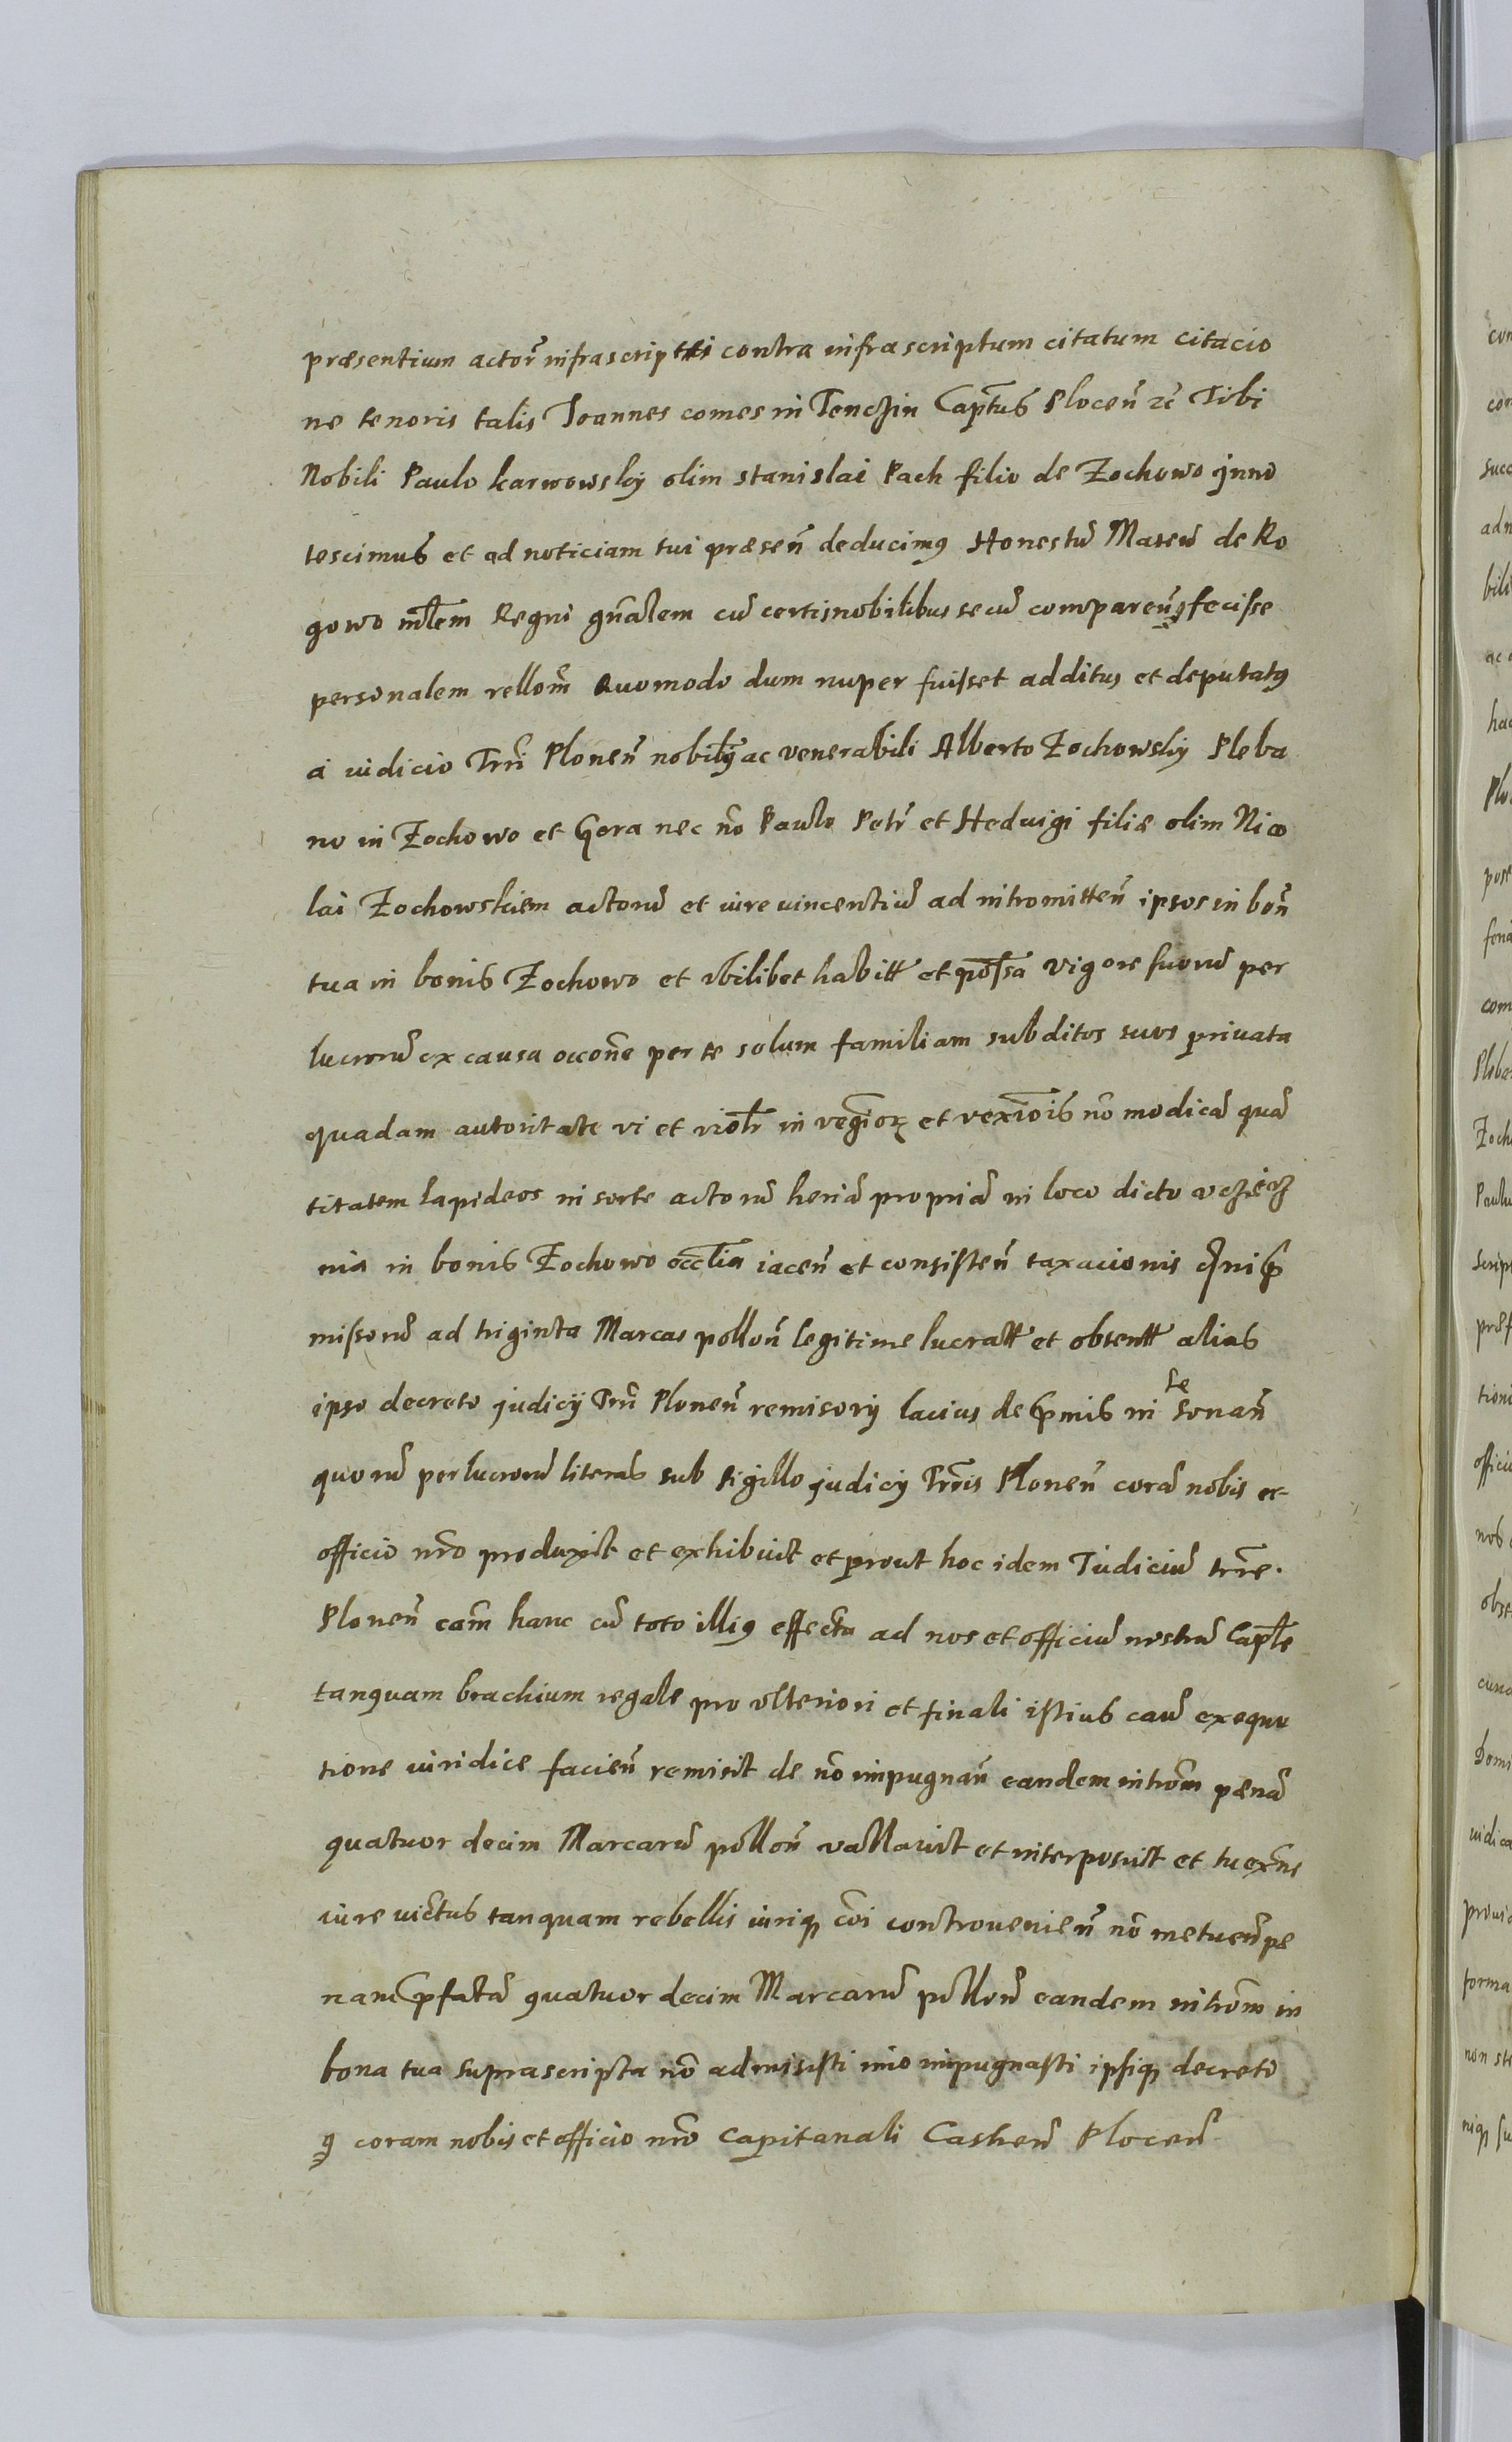 præsentium actor̃ infrascriptti contra infrascriptum citatum citacio
ne tenoris talis Joannes comes in Tenczin Captus̃ Plocen̄ zc̃ Tibi
Nobili Paulo karwowsky olim stanislai Pach filio de Zochowo jnno
tescimus et ad noticiam tui præsen̄ deducimꝰ Honestū Mateū de Ro
gowo mlẽm Regni gn̄alem cū certis nobilibus secū comparen̄ fecisse
personalem rellom̄ Quomodo dum nuper fuisset additus et deputatꝰ
a iudicio Trri Plonen̄ nobili ac venerabili Alberto Zochowsky Pleba
no in Zochowo et Gora nec nō Paulo Petr̃ et Heduigi filiæ olim Nico
lai Zochowskiem actorū et iure uincentiū ad intromitten̄ ipsos in bon̄
tua in bonis Zochowo et vbilibet habitt et possa vigore suorū per
lucrorū ex causa occone per te solum familiam subditos tuos priuata
quadam autoritate vi et violr in et nō modicā quā
titatem lapideos in sorte actorū heriā propriā in loco dicto
nia in bonis Zochowo occlia iacen̄ et consisten̄ taxacionis
missorū ad triginta Marcas pollon̄ legitime lucratt et obtentt alias
ipso decreto judicij Trri Plonen̄ remisorij lacius de p̄mis in se sonan̄
quorū perlucrorū literas sub sigillo judicij Trris Plonen̄ corā nobis et
officio nr̄o produxit et exhibuit et prout hoc idem Judiciū trre.
Plonen̄ cam̄ hanc cū toto illiꝰ effectu ad nos et officiū nostrū Capl̃e
tanquam brachium regale pro vlteriori et finali istius caus exequu
tione iuridice facien̄ remisit de nō impugnan̄ eandem introm̄ pænā
quatuor decim Marcarū pollon̄ vallauit et interposuit et tu exn̄s
iure uictus tanquam rebellis iuriqꝫ cōi controuenien̄ nō metuen̄ pe
nam p̄fatā quatuor decim Marcarū pollon̄ eandem introm̄ in
bona tua suprascripta nō admisisti imo impugnasti ipsiqꝫ decreto
ꝯ coram nobis et officio nr̄o Capitanali Castren̄ Plocen̄